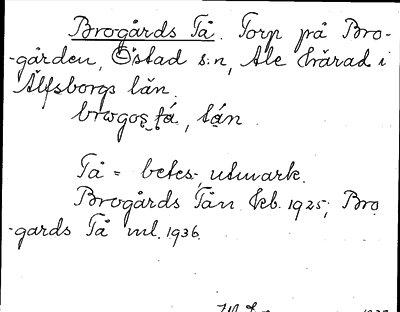 Brogårds Tå. Torp på Bro-
-gården, Östad s:n, Ale härad i
Älfsborgs län.
brωgoṣ tá, tán.
Tå = betes, utmark.
Brogårds Tån kb. 1925; Bro
-gards Tå ml. 1936.